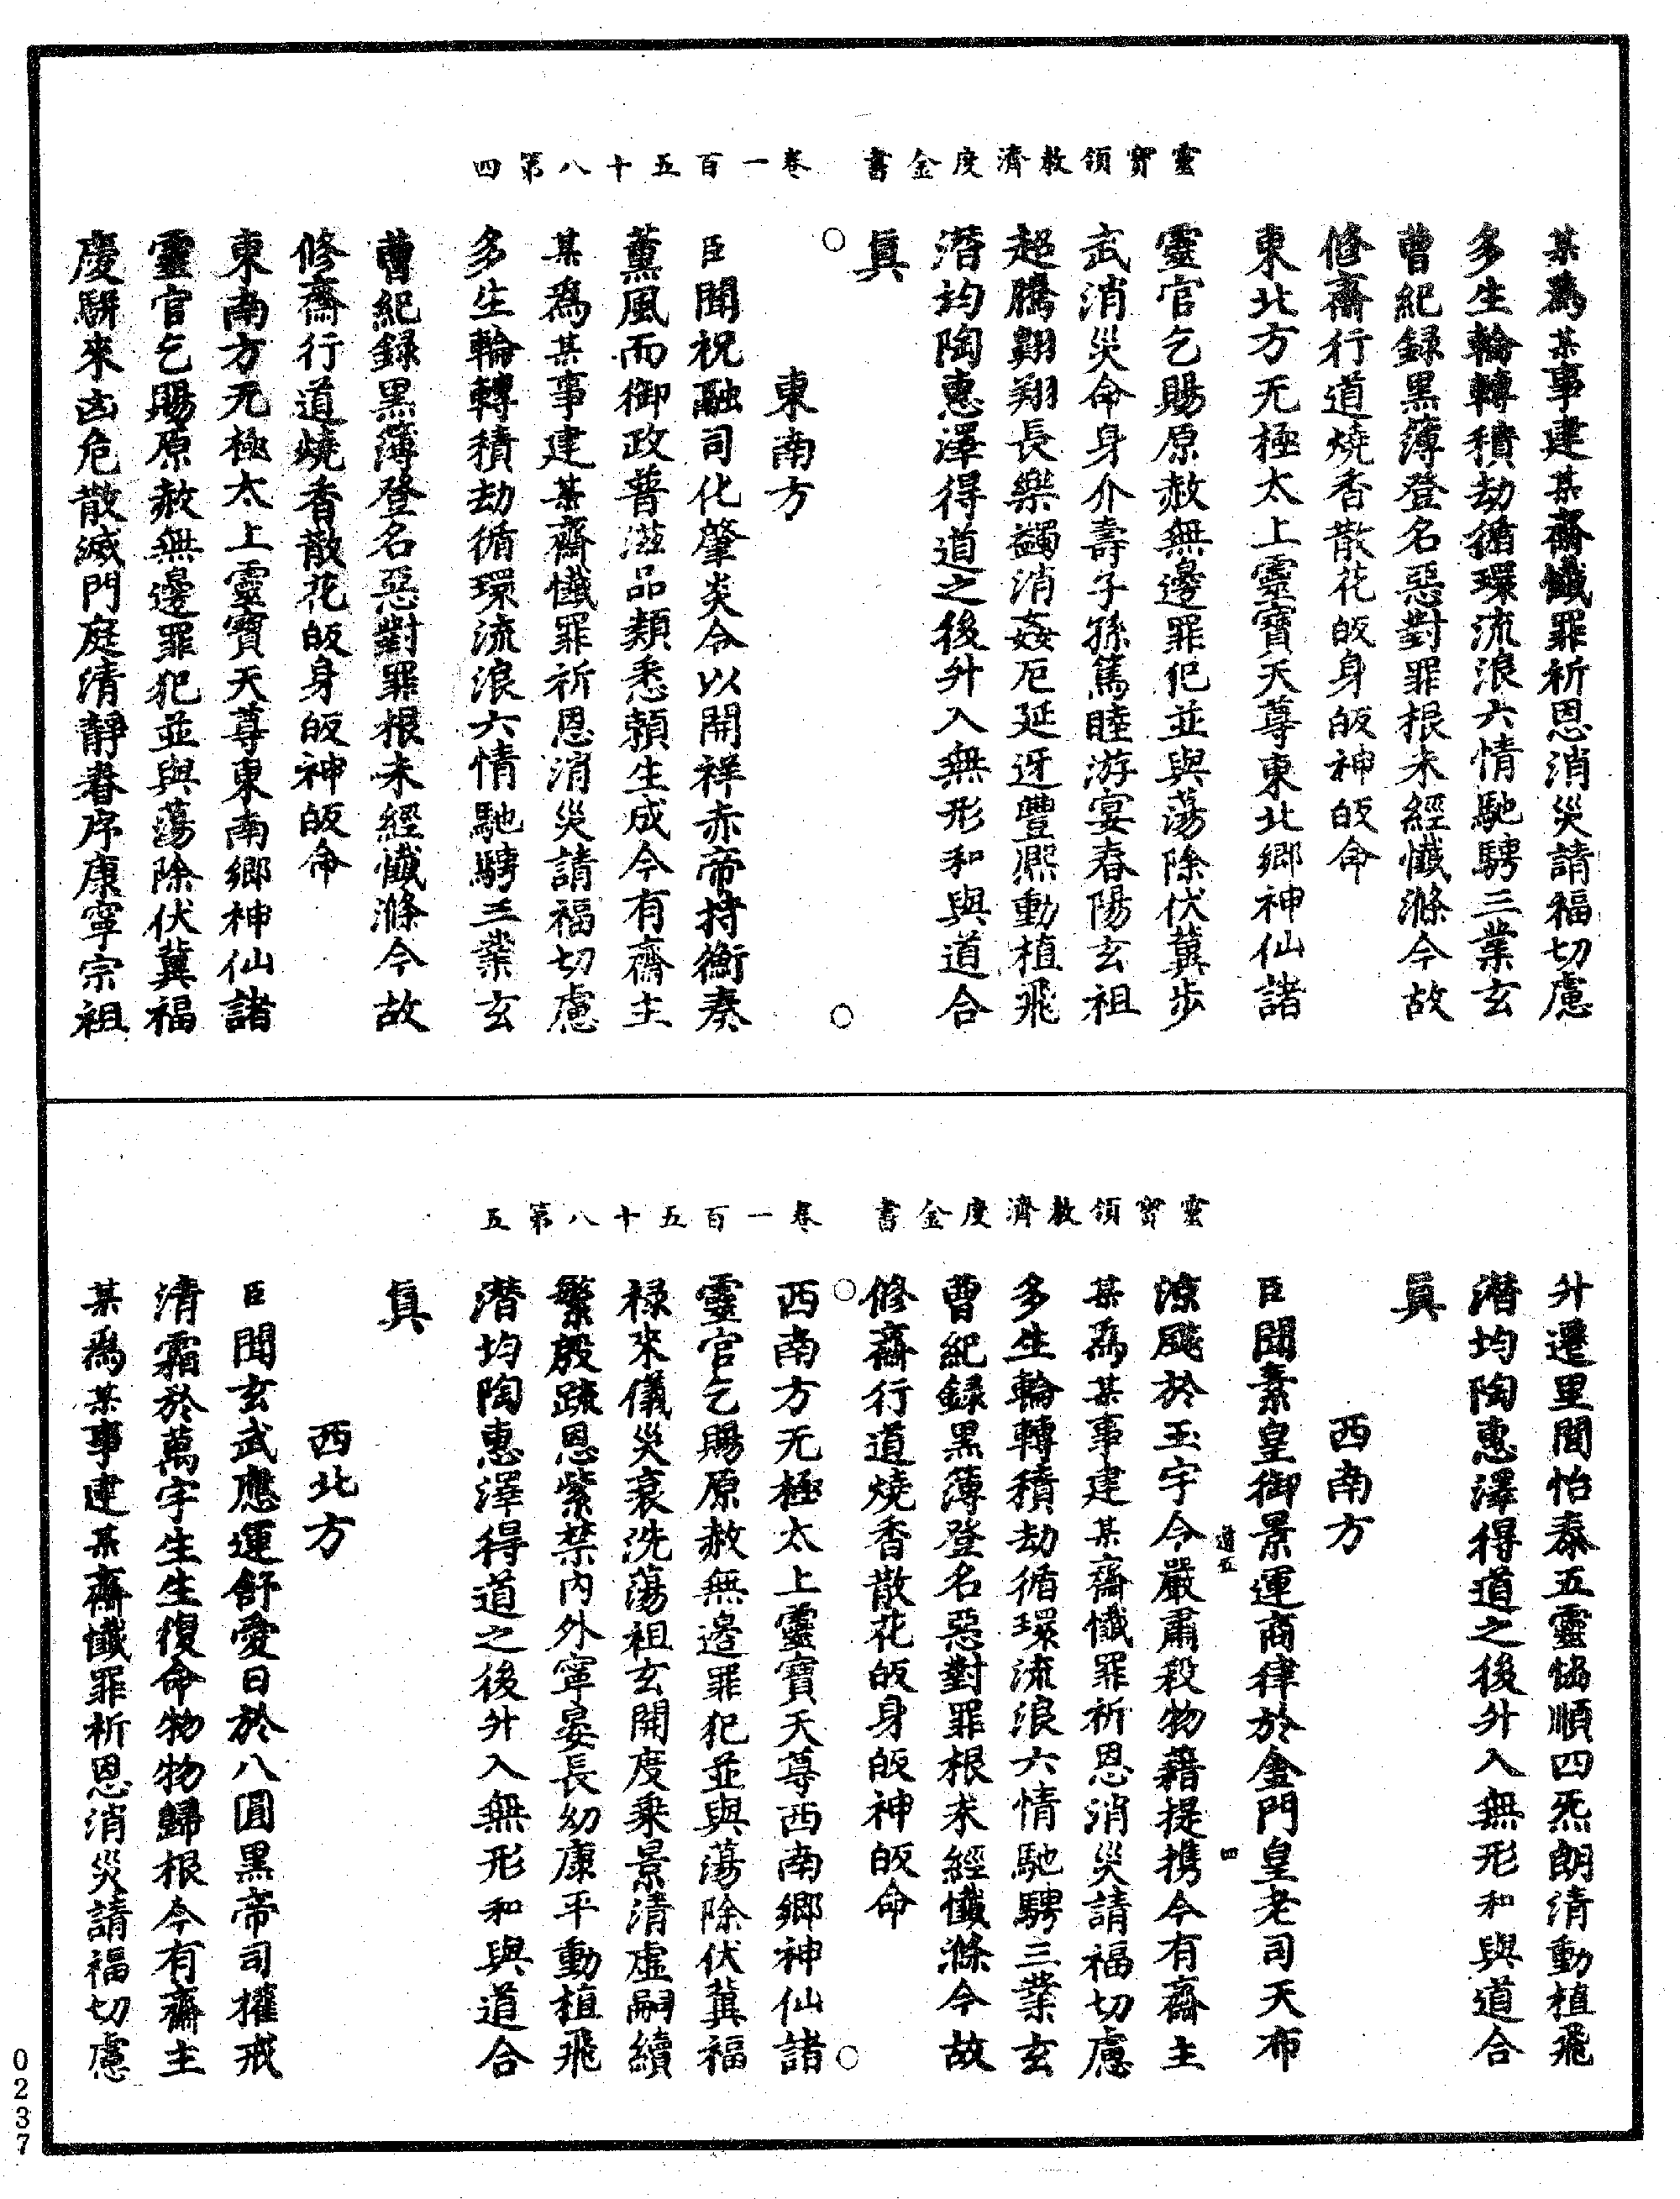 靈寶領教濟度金書　卷一百五十八第四
某爲某事建某齋懺罪祈恩消災請福切慮
多生輪轉積劫循環流浪六情馳騁三業玄
曹紀録黑簿登名惡對罪根未經懺滌今故
修齋行道燒香散花皈身皈神皈命
東北方无極太上靈寶天尊東北鄉神仙諸
靈官乞賜原赦無邊罪犯並與蕩除伏冀步
武消災命身介壽子孫篤睦游宴春陽玄祖
超騰翺翔長樂蠲消姦厄延迓豐熙動植飛
潛均陶惠澤得道之後升入無形和與道合
眞
東南方
臣聞祝融司化肇炎令以開祥赤帝持衡奏
薰風而御政普滋品類悉頼生成今有齋主
某爲某事建某齋懺罪祈恩消災請福切慮
多生輪轉積劫循環流浪六情馳騁三業玄
曹紀録黑簿登名惡對罪根未經懺滌今故
修齋行道燒香散花皈身皈神皈命
東南方无極太上靈寶天尊東南鄉神仙諸
靈官乞賜原赦無邊罪犯並與蕩除伏冀福
慶駢來凶危散滅門庭清靜眷序康寧宗祖
靈寶領教濟度金書　卷一百五十八第五
升遷里閭怡泰五靈恊順四炁朗清動植飛
潛均陶惠澤得道之後升入無形和與道合
眞
西南方
臣聞素皇御景運商律於金門皇老司天布
道五　四
涼飈於玉宇今嚴肅殺物藉提携今有齋主
某爲某事建某齋懺罪祈恩消災請福切慮
多生輪轉積劫循環流浪六情馳騁三業玄
曹紀録黑薄登名惡對罪根未經懺滌今故
修齋行道燒香散花皈身皈神皈命
西南方无極太上靈寶天尊西南鄉神仙諸
靈官乞賜原赦無邊罪犯並與蕩除伏冀福
禄來儀災衰洗蕩祖玄開度乘景清虛嗣續
繁殷疏恩紫禁內外寧晏長幼康平動植飛
潛均陶惠澤得道之後升入無形和與道合
眞
西北方
臣聞玄武應運舒愛日於八圓黑帝司權戒
清霜於萬宇生生復命物物歸根今有齋主
某爲某事建某齋懺罪祈恩消災請福切慮
0237